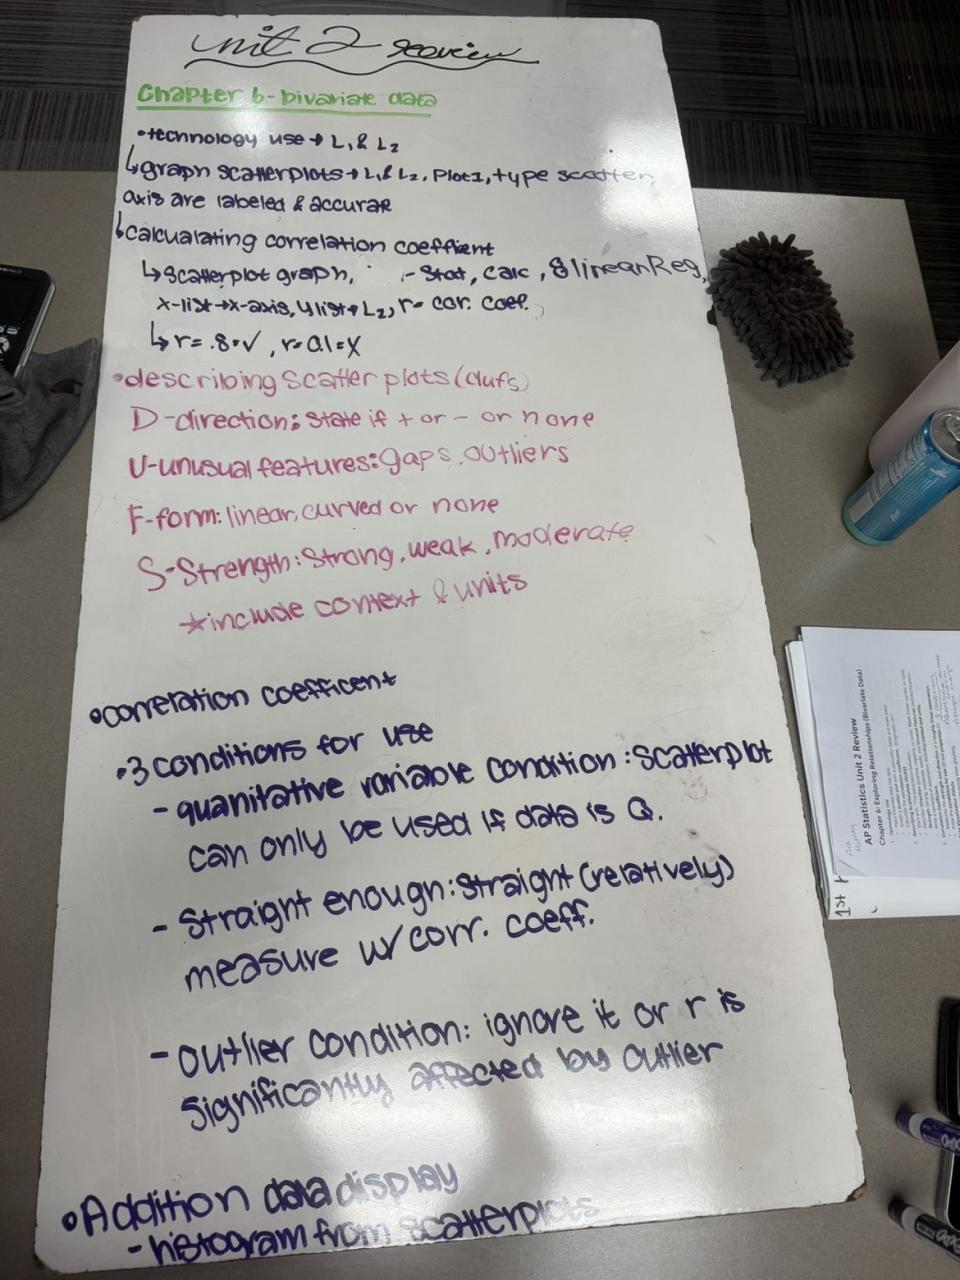 unit 2 review
Chapter 6- bivariate data
•technology use → L₁ & L₂
↳graph scatterplots → L₁ & L₂, Plot1, type scatter,
axis are labeled & accurae
↳calcualating correlation coeffient
↳scatterplot graph, - Stat, calc, 8linearReg,
x-list→x-axis, ylist→L₂, r= cor. coef.
↳r= .8=✓, r=0.1=X
•describing scatter plots (dufs)
D-direction: state if + or - or none
U-unusual features: gaps, outliers
F-form: linear, curved or none
S-Strength: Strong, weak, moderate
*include context & units
•correlation coefficent
•3 conditions for use
- quanitative variable condition: scatterplot
can only be used if data is Q.
- Straight enough: straight (relatively)
measure w/ corr. coeff.
- outlier condition: ignore it or r is
significantly affected by outlier
•Addition data display
- histogram from scatterplots
AP Statistics Unit 2 Review
Chapter 6: Exploring Relationships (Bivariate Data)
1st